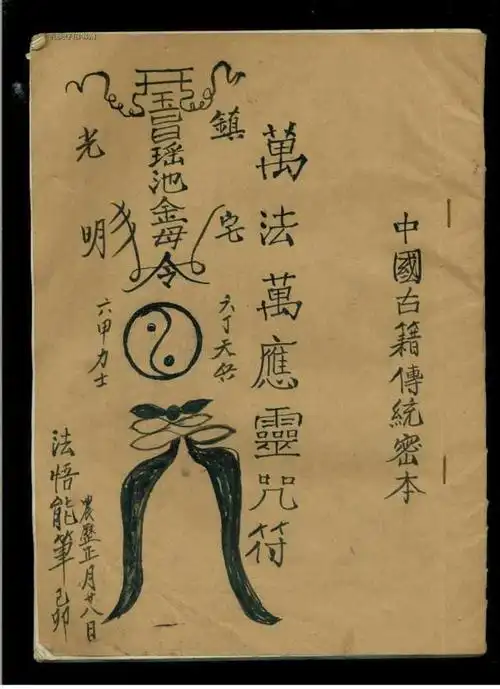 中國古籍傳統密本
萬法萬應靈咒符
鎮宅
六丁天兵
瑶池金母令
光明
六甲力士
農歷正月廿八日
法悟能筆己卯